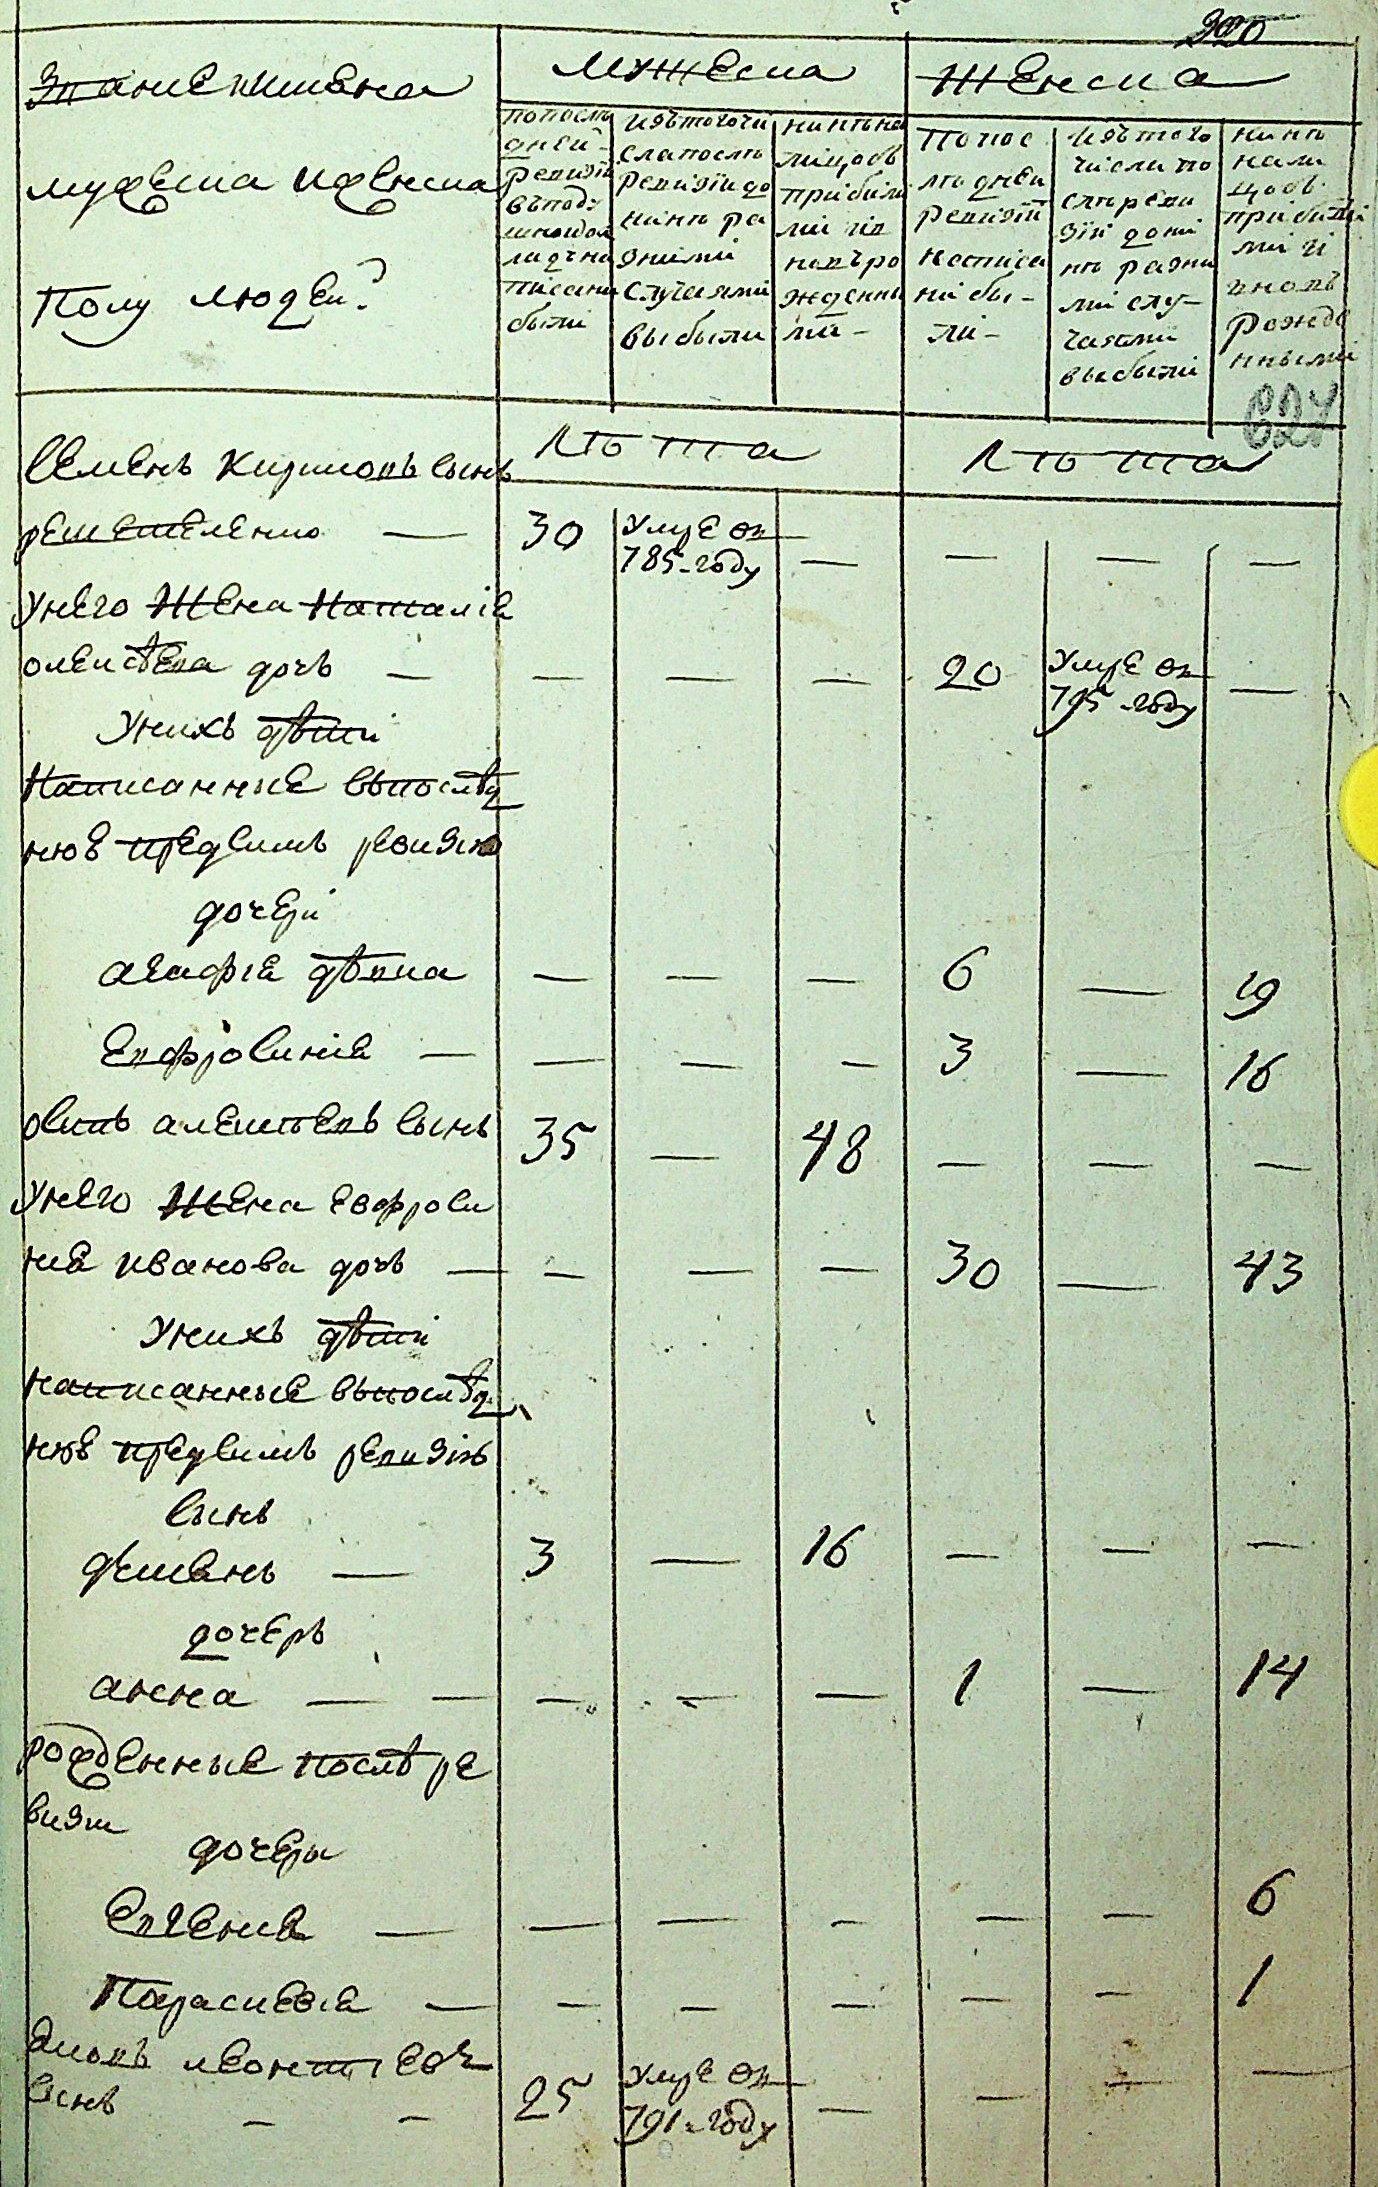 320
Звание и имена
мужеска и женска
полу людей?
мужеска
женска
по послѣ
дней
ревизіи
въ под
писаны
были
изъ того чи
сла послѣ
ревизіи до
нынѣ ра
зными
случаями
выбыли
нынѣ на
лицо съ
прибыли
ми и
новъ ро
жденны
ми —
по пос
лѣдней
ревизіи
написа
ны бы-
ли-
изъ того
числа по
слѣ реви
зіи до ны
нѣ разны
ми слу-
чаями
выбыли
нынѣ
нали
цо съ
прибылы
ми и
вновь
рожде
нными
лѣта
лѣта
Семенъ Кириловъ сынъ
— 30 умре въ — — — —
785-году
у него жена Наталіе
Олексѣева дочь — — — — 20 умре въ —
795-году
у нихъ дѣти
написанные въ послѣд
нюе пред симъ ревизию
дочери
Агафіе дѣвка — — — 6 — 19
Евфросиніе — — — — 3 — 16
Осипъ Алексѣевъ сынъ 35 — 48 — — —
у него жена Евфроси
ніе Иванова дочь — — — — 30 — 43
у нихъ дѣти
написанные въ послѣд
нюе пред симъ ревизію
сынъ
— 3 — 16 — — —
дочерь
Анна — — — — — 1 — 14
рожденные послѣ ре
визіи
дочеры
Евгение — — — — — — 6
Параскевіе — — — — — — 1
Яковъ Леонтіевъ
сынъ — — 25 умре въ — — — —
791-году